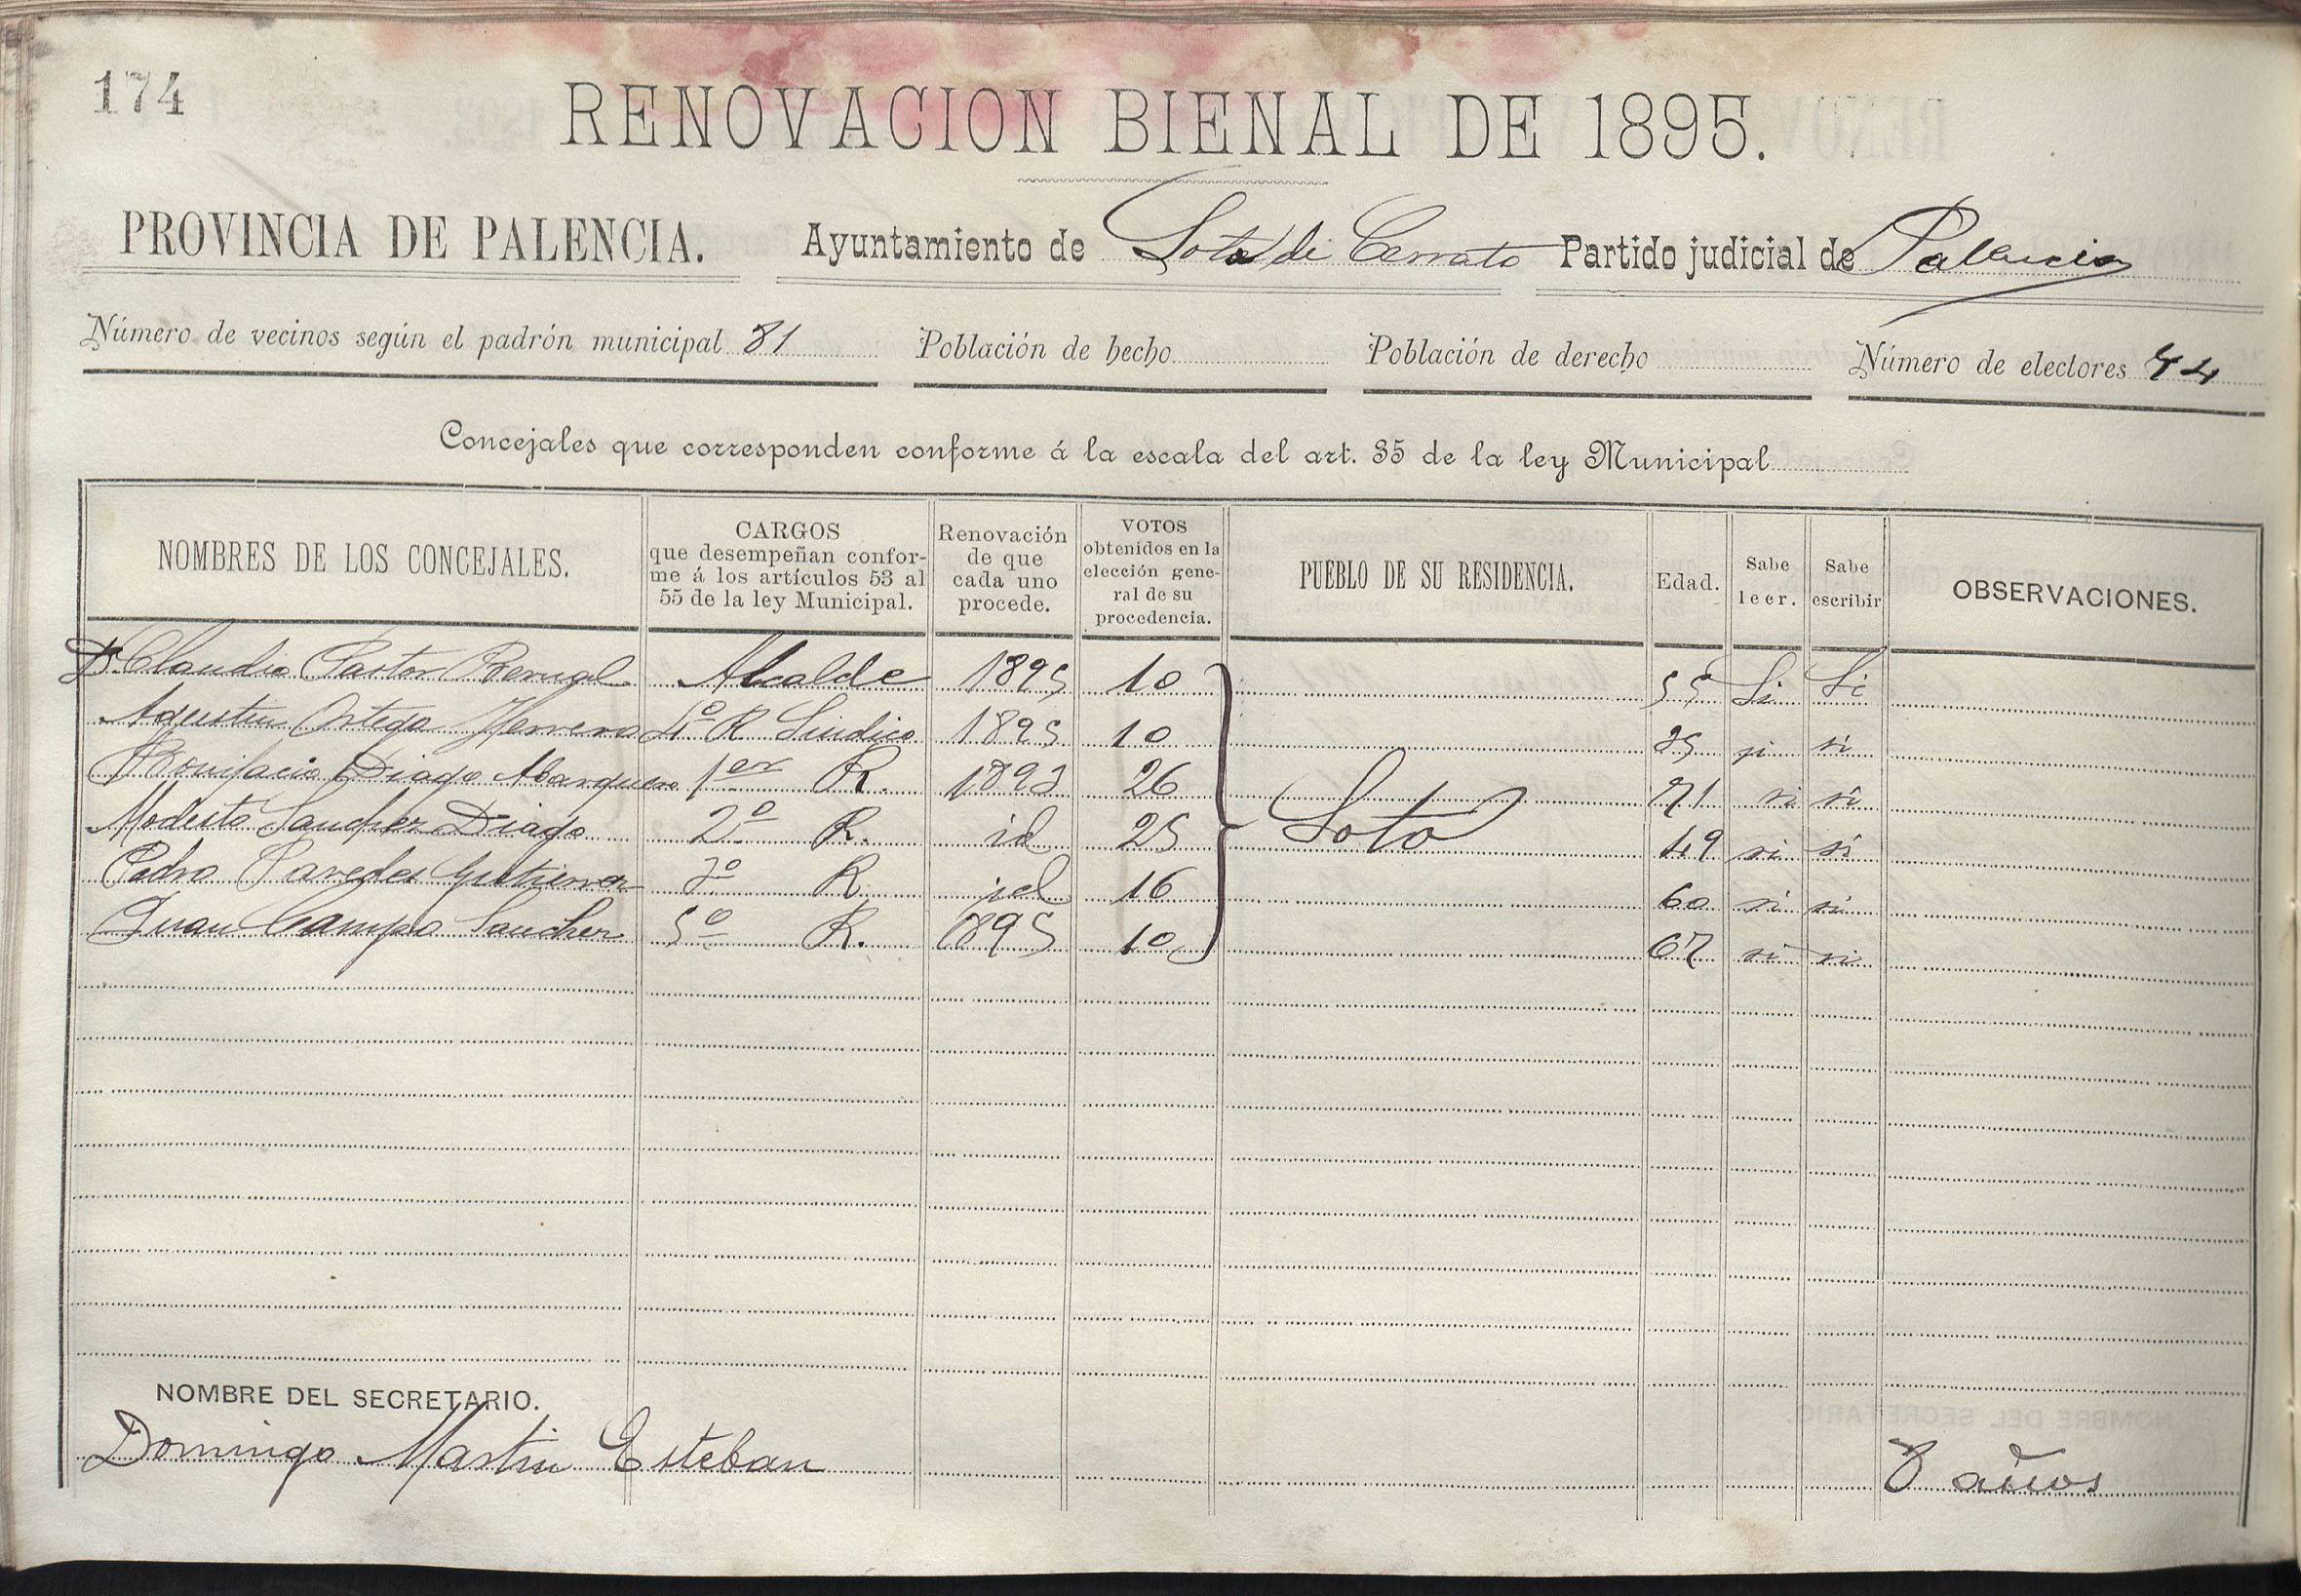 174
RENOVACION BIENAL DE 1895.
PROVINCIA DE PALENCIA. Ayuntamiento de Soto de Cerrato Partido judicial de Palencia
Número de vecinos según el padrón municipal 81 Población de hecho Población de derecho Número de electores 74
Concejales que corresponden conforme á la escala del art. 35 de la ley Municipal
NOMBRES DE LOS CONCEJALES. CARGOS que desempeñan conforme á los artículos 53 al 55 de la ley Municipal. Renovación de que cada uno procede. VOTOS obtenidos en la elección general de su procedencia. PUEBLO DE SU RESIDENCIA. Edad. Sabe leer. Sabe escribir OBSERVACIONES.
Dn. Claudio Pastor Alcalde 1895 10 55 Si Si
Agustin Ortega Herrero 4º R Sindico 1895 10 35 si si
Bonifacio Diago Abarquero 1er R. 1893 26 Soto 71 si si
Modesto Sanchez Diago 2º R. id 25 49 si si
Pedro Paredes Gutierrez 3º R id 16 60 si si
Juan Campo Sanchez 5º R. 1895 10 67 si si
NOMBRE DEL SECRETARIO.
Domingo Martin Esteban 8 años